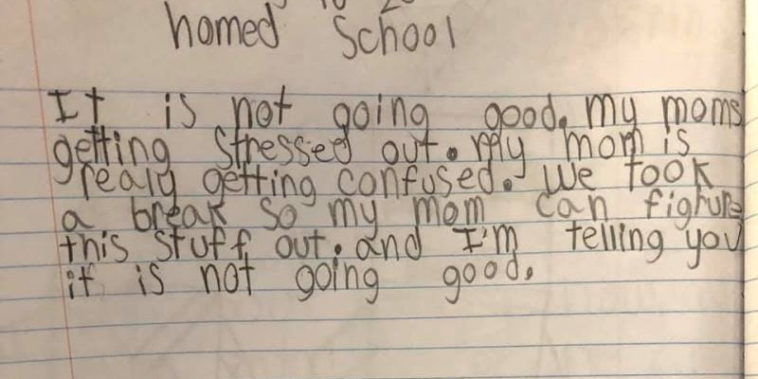 homed School
It is not going good. my moms
getting Stressed out. My mom is
realy getting confused. We took
a break so my mom can fighure
this stuff out. and I'm telling you
it is not going good.